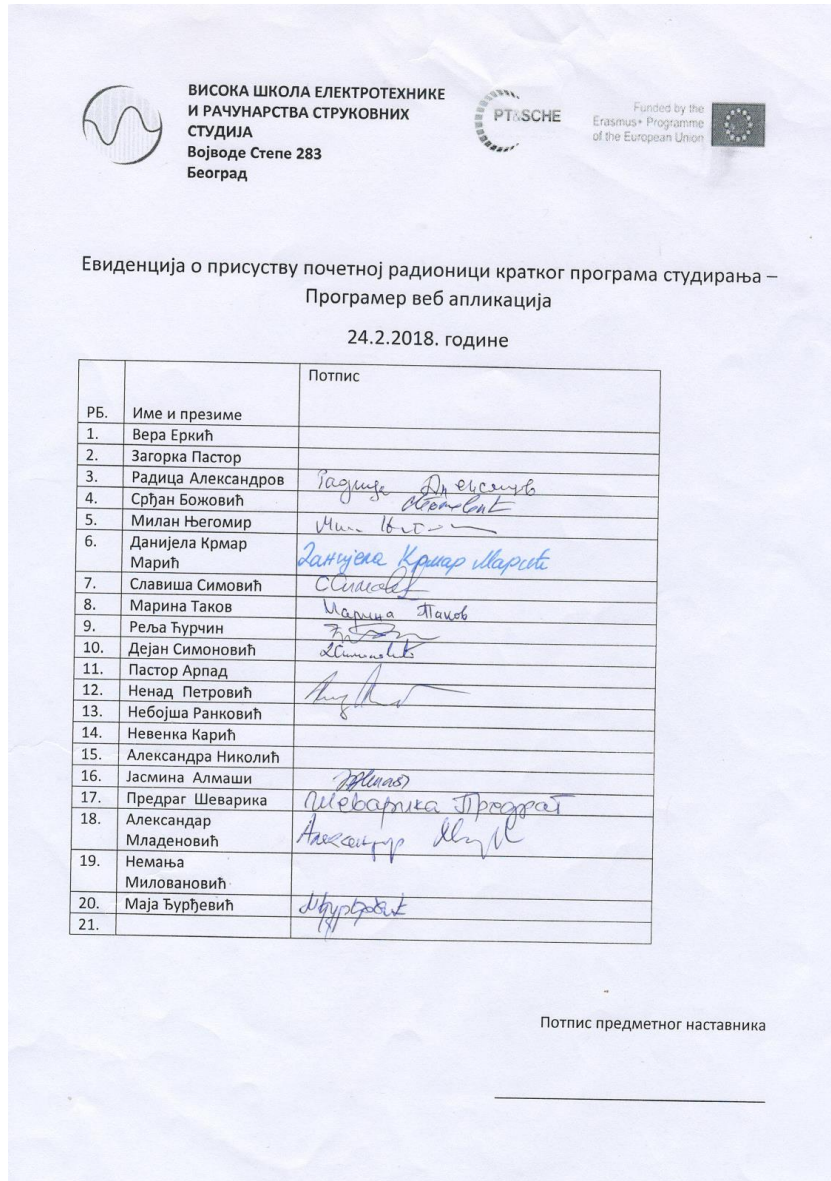 ВИСОКА ШКОЛА ЕЛЕКТРОТЕХНИКЕ
И РАЧУНАРСТВА СТРУКОВНИХ
СТУДИЈА
Војводе Степе 283
Београд
PT&SCHE
Funded by the
Erasmus+ Programme
of the European Union
Евиденција о присуству почетној радионици кратког програма студирања –
Програмер веб апликација
24.2.2018. године
Потпис
РБ. Име и презиме
1. Вера Еркић
2. Загорка Пастор
3. Радица Александров Радица
4. Срђан Божовић
5. Милан Његомир
6. Данијела Крмар
Марић Данијела Крмар Марић
7. Славиша Симовић ССимовић
8. Марина Таков Марина Таков
9. Реља Ћурчин
10. Дејан Симоновић
11. Пастор Арпад
12. Ненад Петровић
13. Небојша Ранковић
14. Невенка Карић
15. Александра Николић
16. Јасмина Алмаши
17. Предраг Шеварика Шеварика Предраг
18. Александар
Младеновић Александар
19. Немања
Миловановић
20. Маја Ђурђевић
21.
Потпис предметног наставника